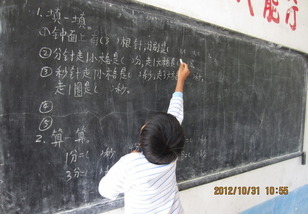 能行
1.填一填
①钟面上有(3)根针,分别是
②分针走1小格是( )分,走1大格是(
③秒针走1小格是( )秒,走3大格
走1圈是( )秒。
④
⑤
2.算一算。
1分=( )秒
3分=(
2012/10/31 10:55